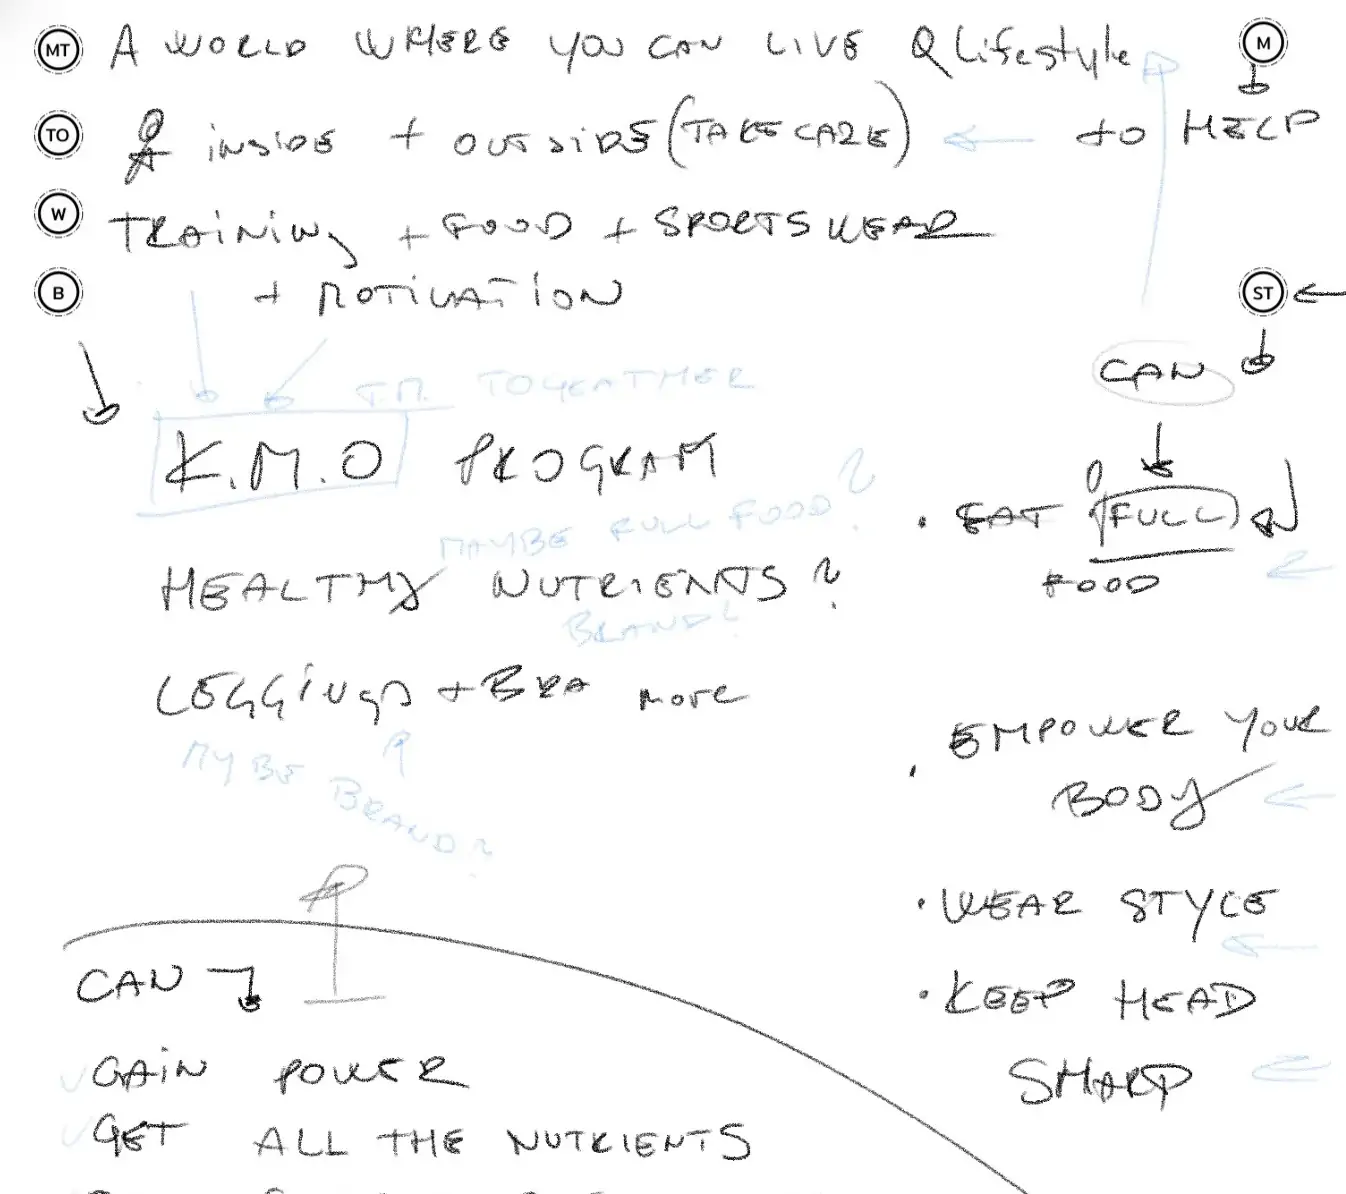 MT A WORLD WHERE YOU CAN LIVE a Lifestyle
M
TO INSIDE + OUTSIDE (TAKE CARE)
to HELP
W TRAINING + FOOD + SPORTSWEAR
B + MOTIVATION
ST
CAN
T.M. TOGEATHER
K.M.O PROGRAM
MAYBE FULL FOOD?
• EAT (FULL)
FOOD
HEALTHY NUTRIENTS?
BRAND?
LEGGINGS + BRA more
MYBE BRAND?
• EMPOWER YOUR
BODY
• WEAR STYLE
• KEEP HEAD
SHARP
CAN
GAIN POWER
GET ALL THE NUTRIENTS